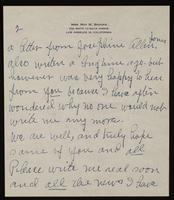 2
a letter from Josephine Allen Jones
also written a long time ago. but
however was very happy to hear
from you because I have often
wondered why no one would not
write me any more.
We are well, and truly hope
same of you and all
Please write me real soon
and all the news I have